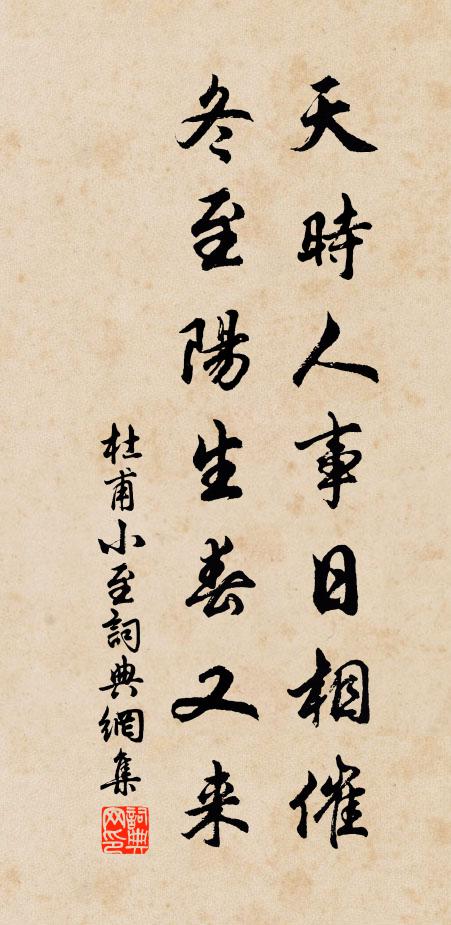 天時人事日相催
冬至陽生春又来
杜甫小至詞典網集
詞典网印